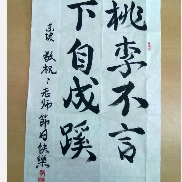 桃李不言
下自成蹊
敬祝：老师節日快樂